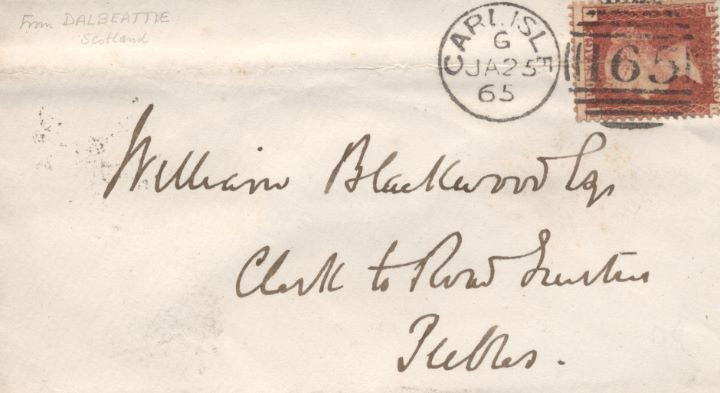 From DALBEATTIE
Scotland
CARLISLE
G
JA25
65
165
William Blackwood Esqr
Clerk to Road Trustees
Peebles.